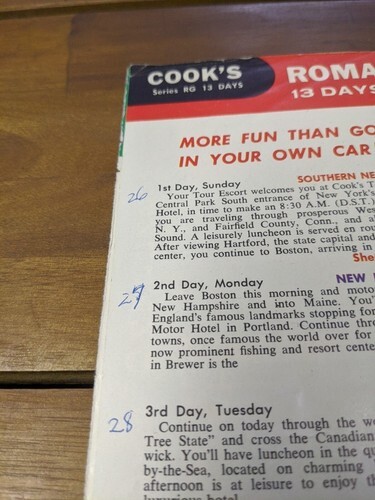 COOK'S
Series RG 13 DAYS
ROMA
13 DAYS
MORE FUN THAN GO
IN YOUR OWN CAR
SOUTHERN NE
26
1st Day, Sunday
Your Tour Escort welcomes you at Cook's T
Central Park South entrance of New York's
Hotel, in time to make an 8:30 A.M. (D.S.T.)
you are traveling through prosperous Wes
N. Y., and Fairfield County, Conn., and a
Sound. A leisurely luncheon is served en rou
After viewing Hartford, the state capital and
center, you continue to Boston, arriving in
She
27
2nd Day, Monday
NEW
Leave Boston this morning and moto
New Hampshire and into Maine. You'
England's famous landmarks stopping for
Motor Hotel in Portland. Continue thro
towns, once famous the world over for
now prominent fishing and resort cente
in Brewer is the
28
3rd Day, Tuesday
Continue on today through the wo
Tree State" and cross the Canadian
wick. You'll have luncheon in the qu
by-the-Sea, located on charming
afternoon is at leisure to enjoy th
luxurious hotel